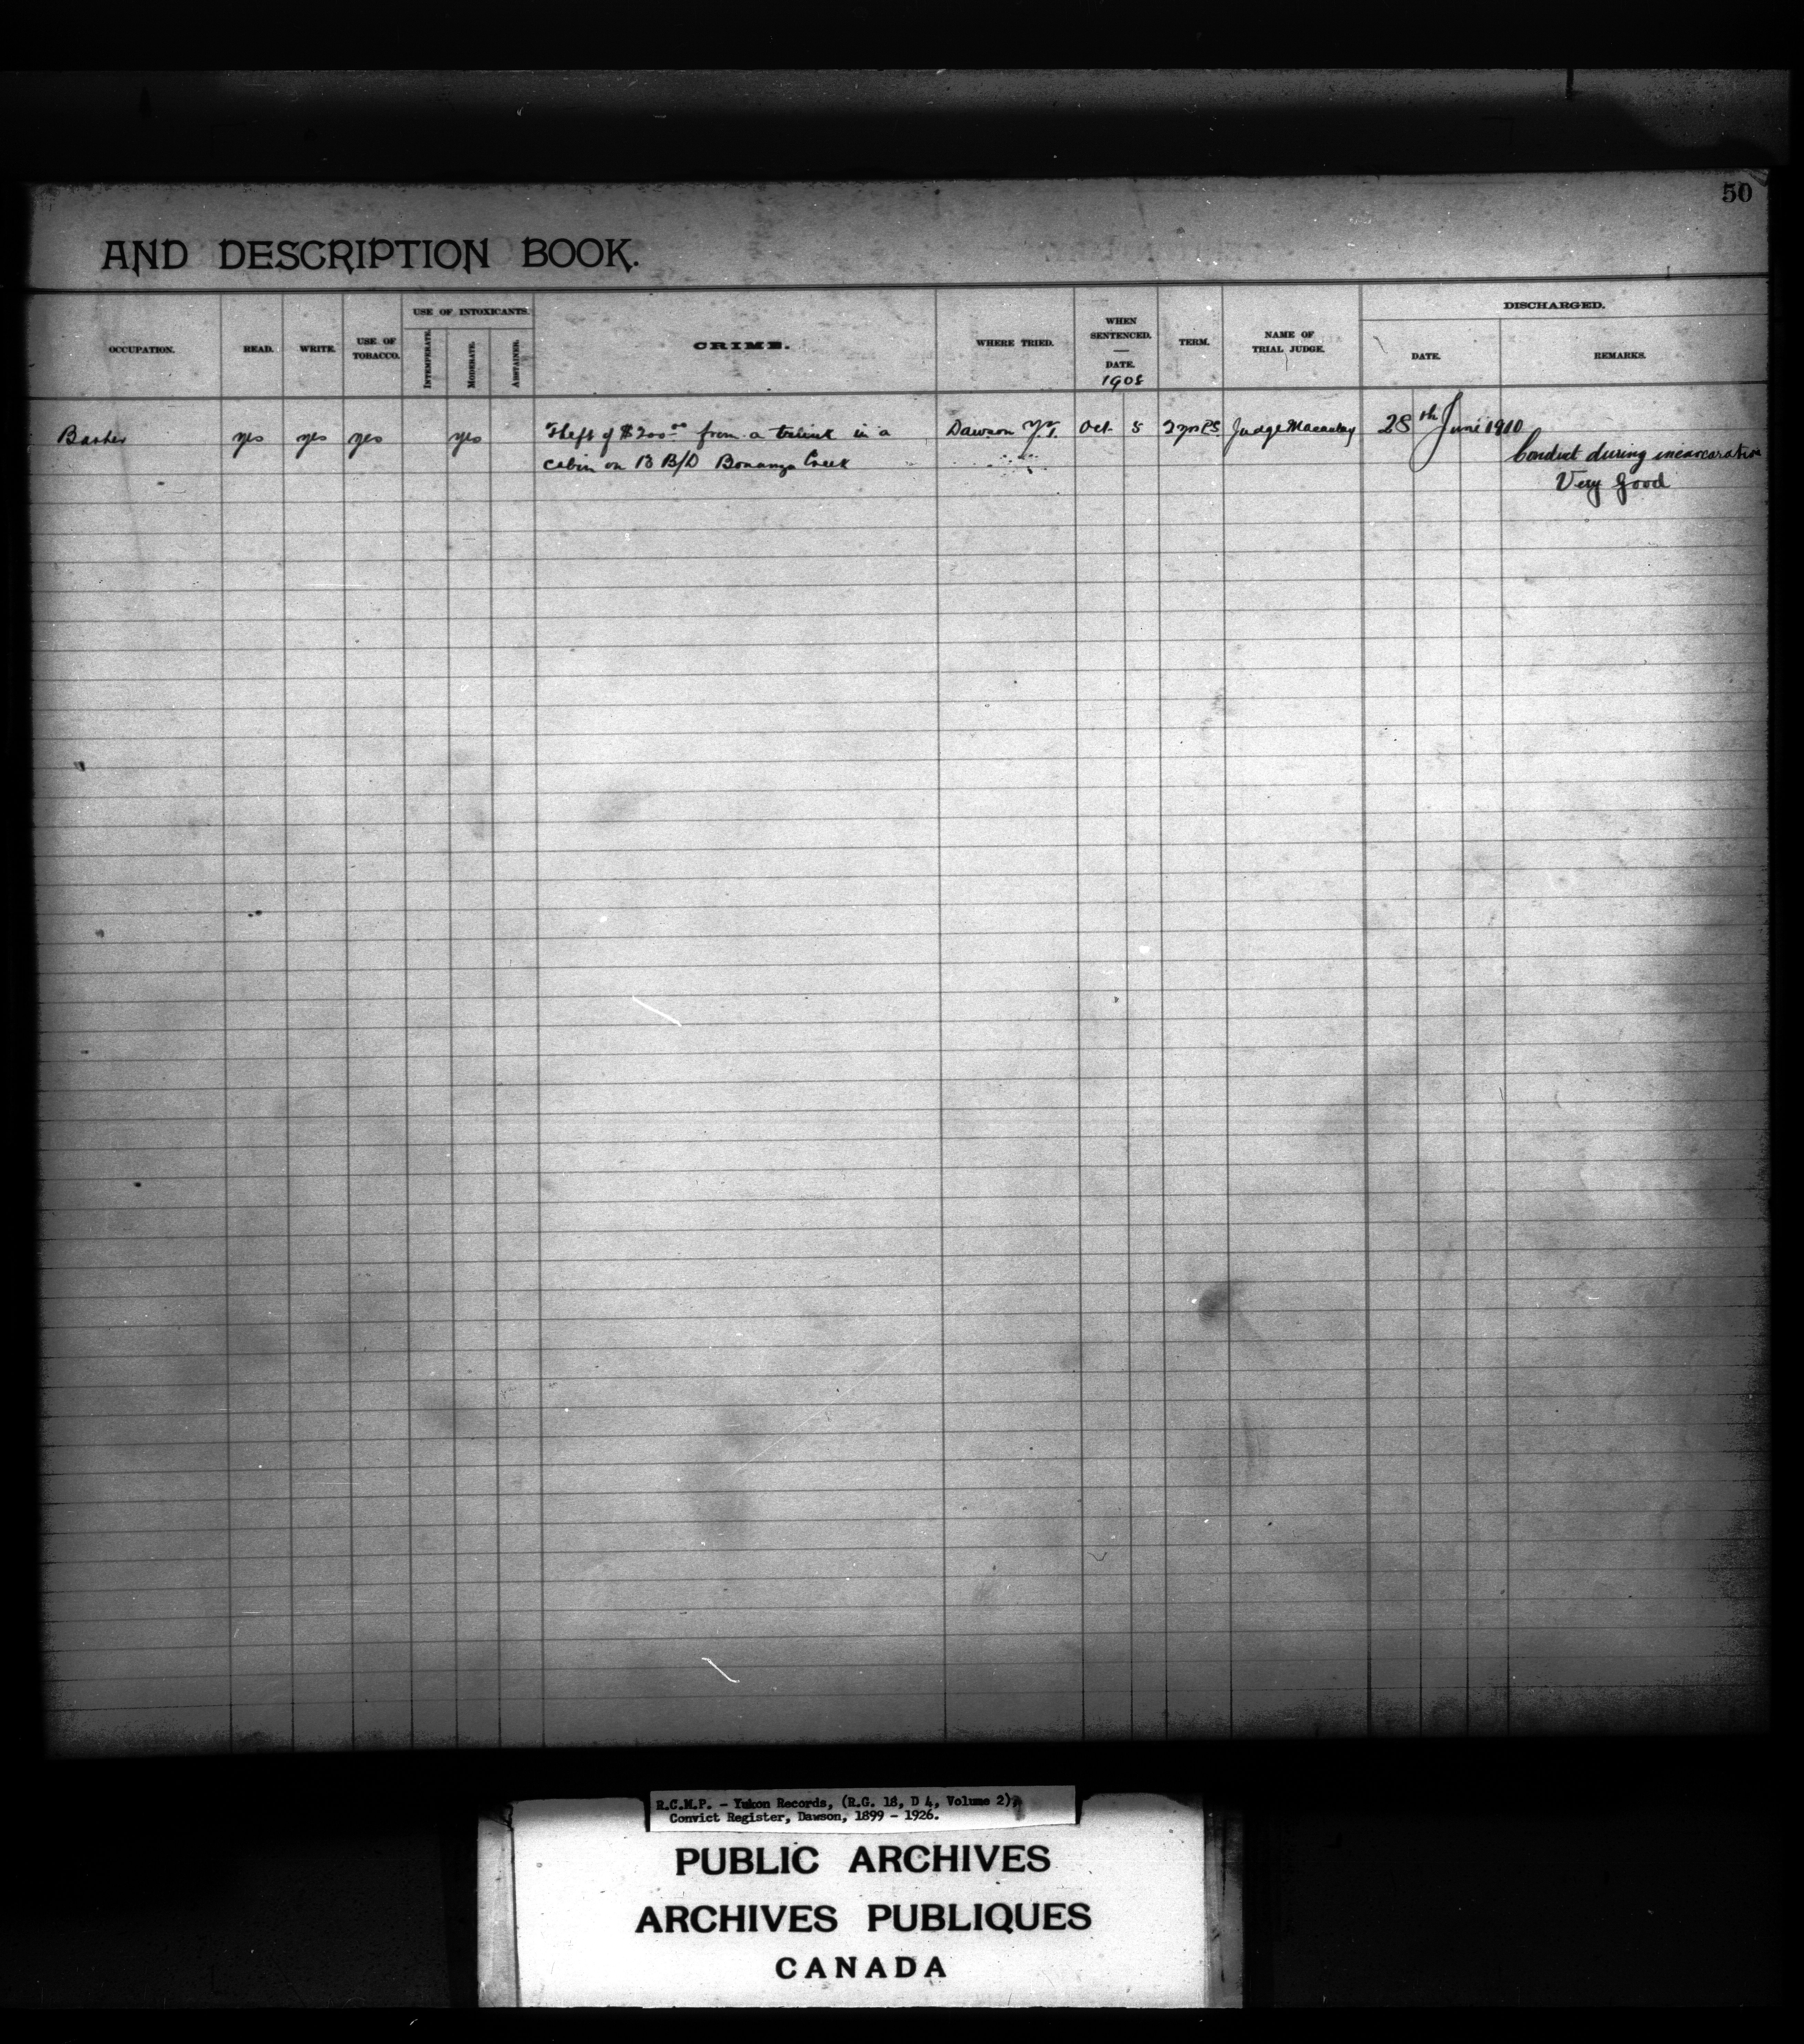 50
AND DESCRIPTION BOOK.
OCCUPATION. READ. WRITE. USE OF TOBACCO. USE OF INTOXICANTS. INTEMPERATE. MODERATE. ABSTAINER. CRIME. WHERE TRIED. WHEN SENTENCED. — DATE. 1908 TERM. NAME OF TRIAL JUDGE. DISCHARGED. DATE. REMARKS.
yes yes yes yes Theft of $200.00 from a in a Dawson Y.T. Oct. 5 2 yrs Judge Macaulay 28th June 1910
cabin on B B/D Bonanza Creek Conduct during incarceration
Very Good
R.C.M.P. - Yukon Records, (R.G. 18, D 4, Volume 2),
Convict Register, Dawson, 1899 - 1926.
PUBLIC ARCHIVES
ARCHIVES PUBLIQUES
CANADA